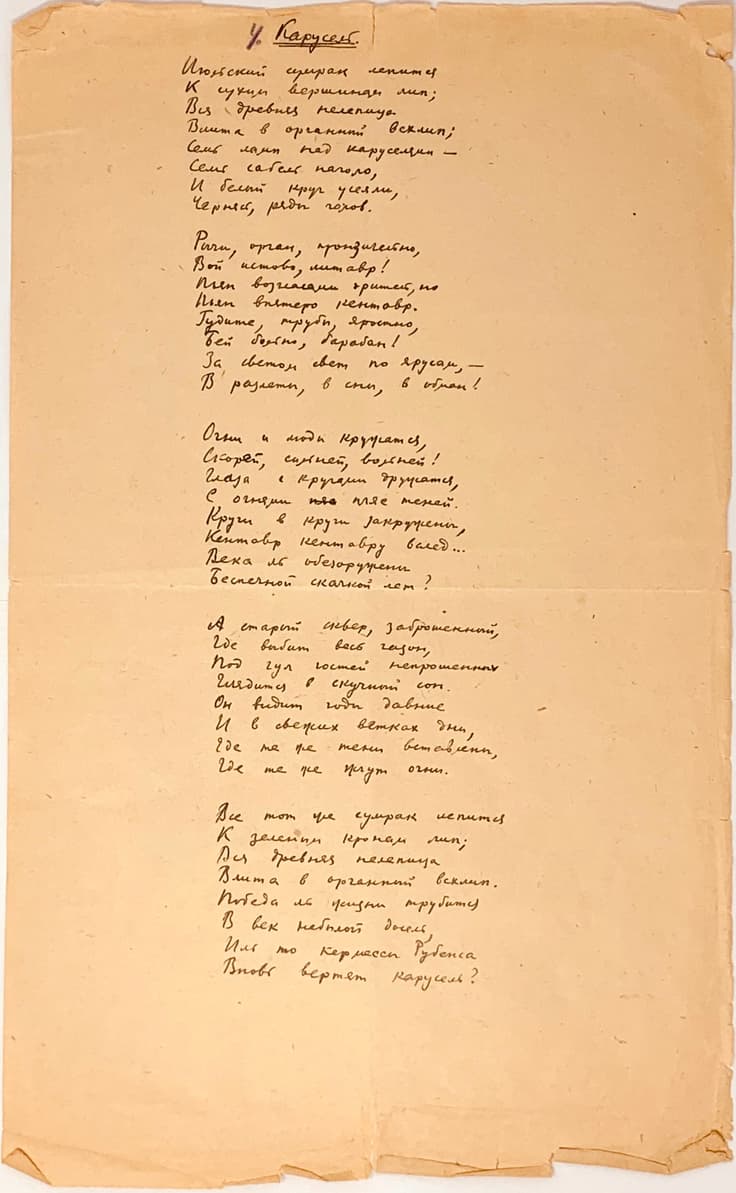 4. Карусель.
Июльский сумрак лепится
К сухим вершинам лип;
Вся древняя нелепица
Влита в органный всхлип;
Семь ламп над каруселями —
Семь сабель наголо,
И белый круг усеяли,
Чернят, ряды голов.
Рычи, орган, пронзительно,
Вой истово, литавр!
Пьян возгласами зритель, но
Пьян впятеро кентавр.
Гудите, трубы, яростно,
Бей больно, барабан!
За светом свет по ярусам, —
В разлеты, в сны, в обман!
Огни и люди кружатся,
Скорей, сильней, вольней!
Глаза с кругами дружатся,
С огнями пляс теней.
Круги в круги закружены,
Кентавр кентавру вслед...
Века ль обезоружены
Беспечной скачкой лет?
А старый сквер, заброшенный,
Где выбит весь газон,
Под гул гостей непрошенных
Глядится в скучный сон.
Он видит годы давние
И в свежих ветках дни,
Где те же тени вставлены,
Где те же жгут огни.
Все тот же сумрак лепится
К зеленым кронам лип;
Вся древняя нелепица
Влита в органный всхлип.
Победа ль жизни трубится
В век небылой досель,
Иль то кермессы Рубенса
Вновь вертят карусель?